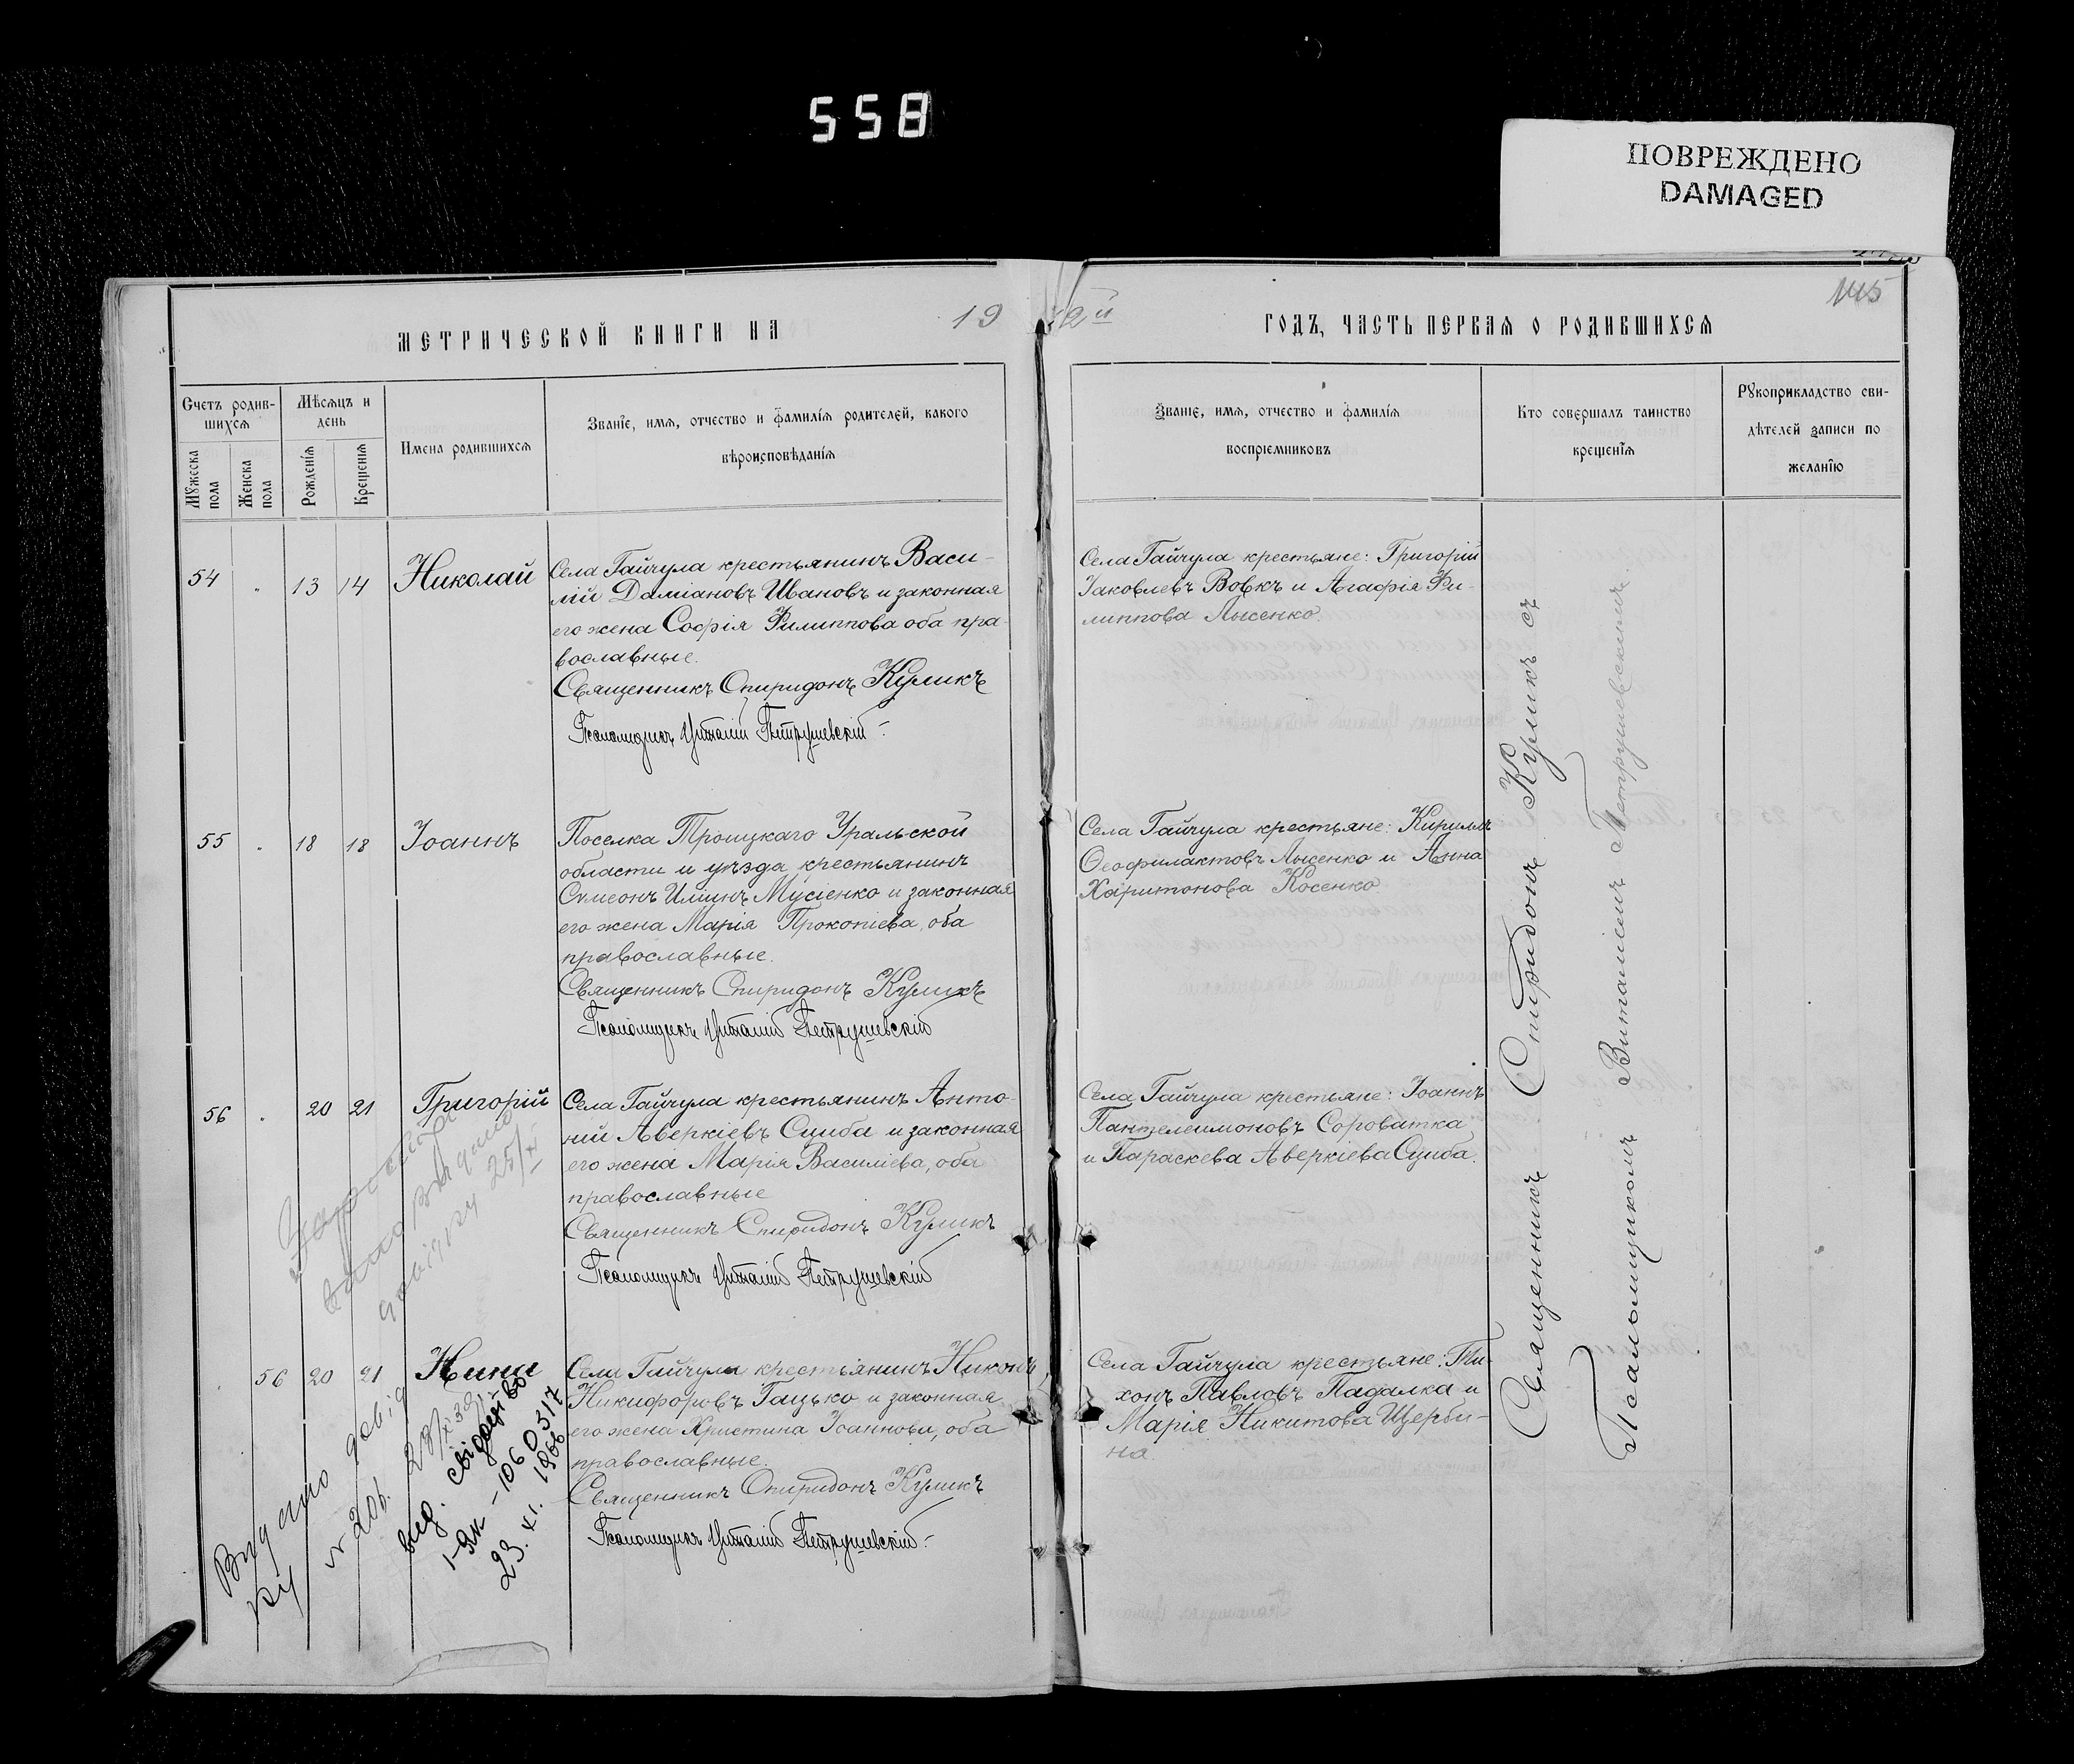 558
ПОВРЕЖДЕНО
DAMAGED
145
МЕТРИЧЕСКОЙ КНИГИ НА 19
2й ГОДЪ, ЧАСТЬ ПЕРВАЯ О РОДИВШИХСЯ
Счетъ родив-
шихся
Мѣсяцъ и
день
Мужеска
пола
Женска
пола
Рожденія
Крещенія
Имена родившихся
Званіе, имя, отчество и фамилія родителей, какого
вѣроисповѣданія
Званіе, имя, отчество и фамилія
воспріемниковъ
Кто совершалъ таинство
крещенія
Рукоприкладство сви-
дѣтелей записи по
желанію
54 13 14 Николай
Села Гайчула крестьянинъ Васи-
лій Даміановъ Ивановъ и законная
его жена Софія Филиппова оба пра-
вославные.
Священникъ Спиридонъ Куликъ
Псаломщикъ Виталій Петрушевскій
Села Гайчула крестьяне: Григорій
Іаковлевъ Вовкъ и Агафія Фи-
липпова Лысенко.
55 18 18 Іоаннъ
Поселка Троицкаго Уральской
области и уѣзда крестьянинъ
Симеонъ Иліинъ Мусіенко и законная
его жена Марія Прокопіева, оба
православные.
Священникъ Спиридонъ Куликъ
Псаломщикъ Виталій Петрушевскій
Села Гайчула крестьяне: Кириллъ
Ѳеофилактовъ Лысенко и Анна
Харитонова Косенко.
56 20 21 Григорій
Села Гайчула крестьянинъ Анто-
ній Аверкіевъ Сциба и законная
его жена Марія Василіева, оба
православные
Священникъ Спиридонъ Куликъ
Псаломщикъ Виталій Петрушевскій
Села Гайчула крестьяне: Іоаннъ
Пантелеимоновъ Сороватка
и Параскева Аверкіева Сциба.
видано
довідку 25/XI
56 20 21 Нина
Села Гайчула крестьянинъ Никонъ
Никифоровъ Гацько и законная
его жена Христина Іоаннова, оба
православные.
Священникъ Спиридонъ Куликъ
Псаломщикъ Виталій Петрушевскій
Села Гайчула крестьяне: Ти-
хонъ Павловъ Падалка и
Марія Никитова Щерби-
на
Видано довід
ку
вид. свідоцтво
23. XI. 1966
Священникъ Спиридонъ Куликъ съ
Псаломщикомъ Виталіемъ Петрушевскимъ.